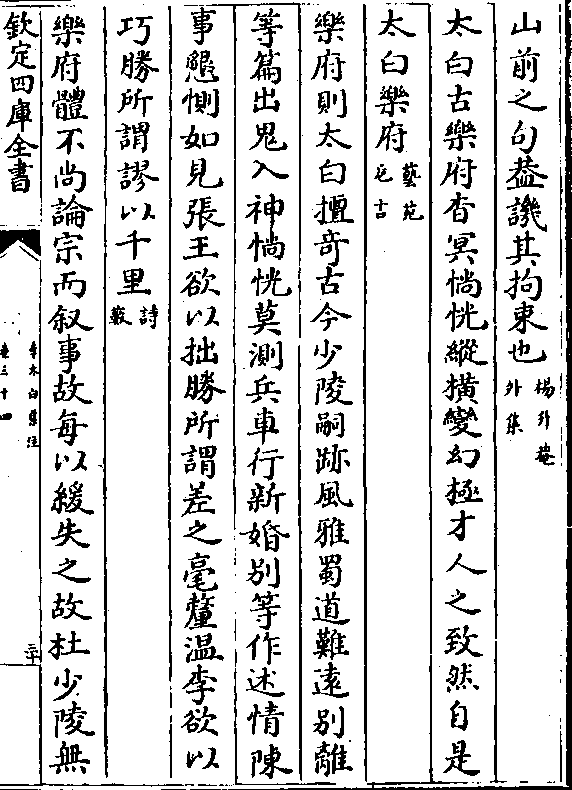 山前之句葢譏其拘束也楊升菴外集
太白古樂府杳冥惝恍縱横變幻極才人之致然自是
太白樂府藝苑巵言
樂府則太白擅奇古今少陵嗣跡風雅蜀道難逺别離
等篇出鬼入神惝恍莫測兵車行新婚别等作述情陳
事懇惻如見張王欲以拙勝所謂差之毫釐温李欲以
巧勝所謂謬以千里詩藪
樂府體不尚論宗而叙事故每以緩失之故杜少陵無
欽定四庫全書
李太白集注
卷三十四
三十